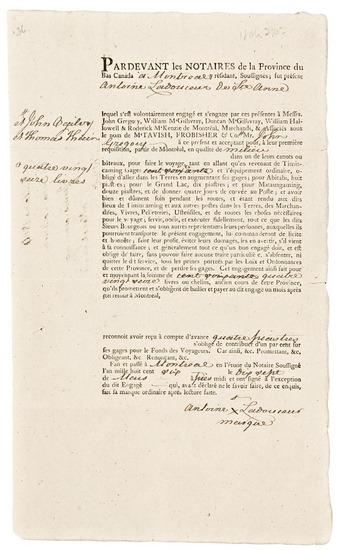 PARDEVANT les NOTAIRES de la Province du
Bas Canada à Montreal y résidant, Soussignés; fut présent
Antoine Ladouceur De Ste Anne
lequel s'est volontairement engagé et s'engage par ces présentes à Messrs.
John Gregory, William M'Gillivray, Duncan M'Gillivray, William Hal-
lowell & Roderick M'Kenzie de Montréal, Marchands, & Associés sous
le nom de M'TAVISH, FROBISHER & Co. Mr. John
Gregory à ce présent et acceptant pour, à leur première
réquisition, partir de Montréal, en qualité de milieu
dans un de leurs canots ou
bâteaux, pour faire le voyage, tant en allant qu'en revenant de Timis-
caming et l'équipement ordinaire, o-
bligé d'aller dans les Terres en augmentant ses gages; pour Abitibi, huit
piastres; pour le Grand Lac, dix piastres; et pour Matawagaming,
douze piastres, et de donner quatre jours de corvée au Poste; et avoir
bien et dûment soin pendant les routes, et étant rendu aux dits
lieux de Timiscaming et aux autres postes des Terres, des Marchan-
dises, Vivres, Pelleteries, Ustensiles, et de toutes les choses nécessaires
pour le voyage; servir, obéir, et exécuter fidellement, tout ce que les dits
Sieurs Bourgeois ou tous autres représentans leurs personnes, auxquels ils
pourroient transporter le présent engagement, lui commanderont de licite
et honnête; faire leur profit, éviter leurs dommages, les en avertir, s'il vient
à sa connoissance; et généralement tout ce qu'un bon engagé doit, et est
obligé de faire, sans pouvoir faire aucune traite particulière, s'absenter, ni
quitter le dit service, sous les peines portées par les Loix et Ordonnances
de cette Province, et de perdre ses gages. Cet engagement ainsi fait pour
et moyennant la somme de cent soixante quatre
vingt seize livres ou chelins, ancien cours de cette Province,
qu'ils promettent et s'obligent de bailler et payer au dit engagé un mois après
son retour à Montréal,
reconnoit avoir reçu à compte d'avance quatre piastres
s'oblige de contribuer d'un par cent sur
ses gages pour le Fonds des Voyageurs. Car ainsi, &c. Promettant, &c.
Obligeant, &c. Renonçant, &c.
Fait et passé à Montreal en l'étude du Notaire Soussigné
l'an mil huit cent six le Dix sept
de Mars midi et ont signé à l'exception
du dit Engagé qui, ayant déclaré ne le savoir faire, de ce enquis,
a fait sa marque ordinaire après lecture faite.
Antoine x Ladouceur
marque
John Ogilvy
& Thomas
quatre vingt
seize livres